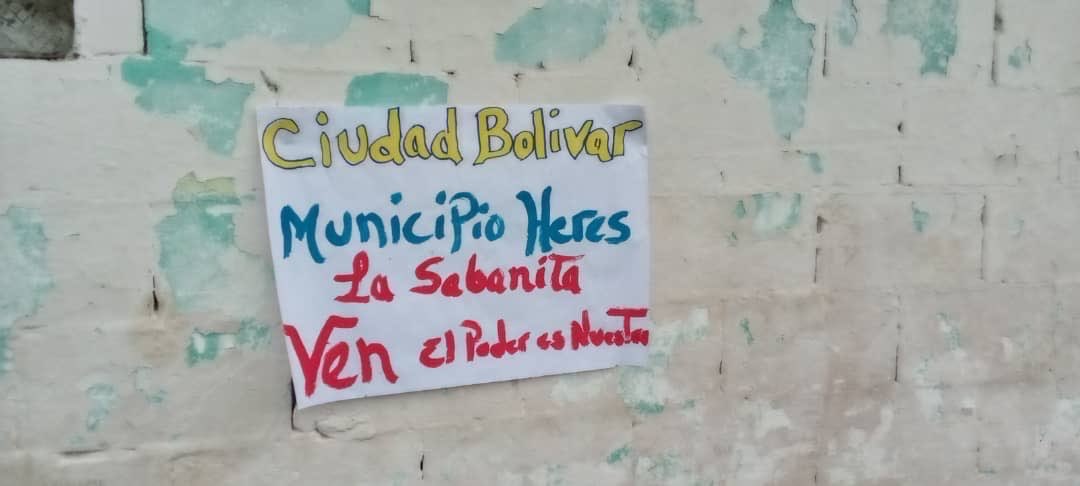 Ciudad Bolivar
Municipio Heres
La Sabanita
Ven El Poder es Nuestro